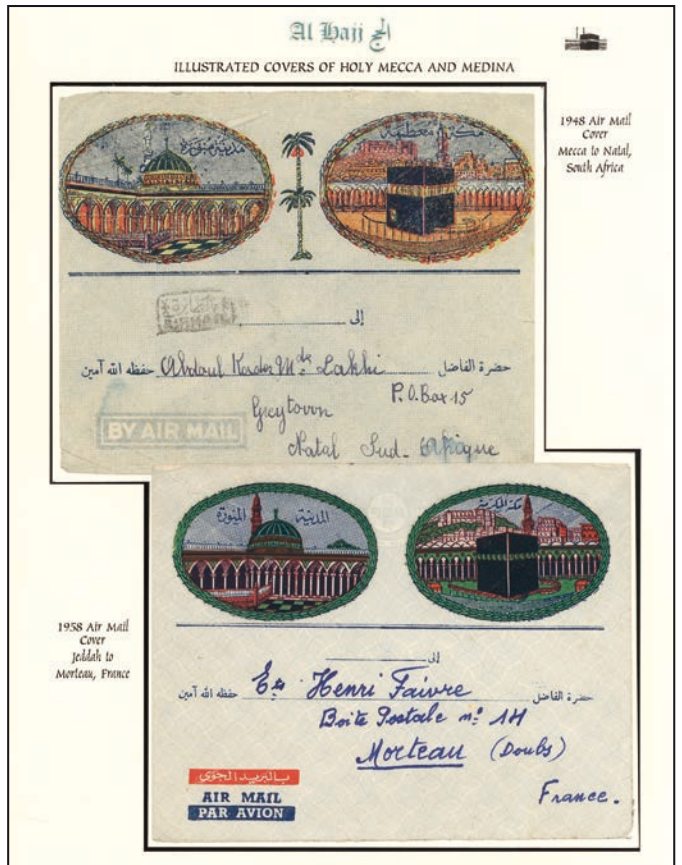 Al Hajj الحج
ILLUSTRATED COVERS OF HOLY MECCA AND MEDINA
1948 Air Mail
Cover
Mecca to Natal,
South Africa
مدينة منورة
مكة معظمة
AIRMAIL
إلى
حضرة الفاضل Abdoul Kader Md. Lakhi حفظه الله آمين
P.O.Box 15
Greytown
BY AIR MAIL
Natal Sud-Afrique
1958 Air Mail
Cover
Jeddah to
Morteau, France
المدينة المنورة
مكة المكرمة
إلى
حضرة الفاضل Ets Henri Faivre حفظه الله آمين
Boite Postale no: 14
Morteau (Doubs)
France.
بالبريد الجوى
AIR MAIL
PAR AVION